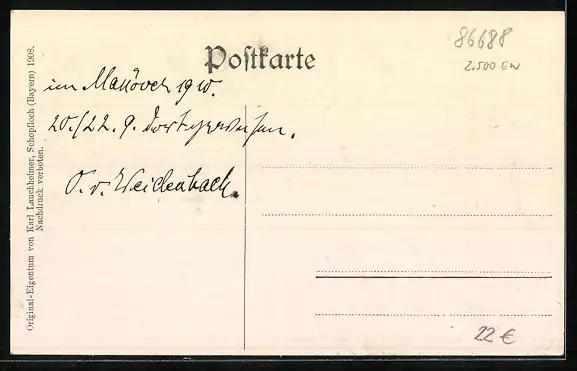 86688
2.500 EW
Postkarte
im Manöver 1910.
20./22. 9. dortgewesen.
O. v. Weidenbach.
Original-Eigentum von Karl Lauchheimer, Schopfloch (Bayern) 1908.
Nachdruck verboten.
22 €